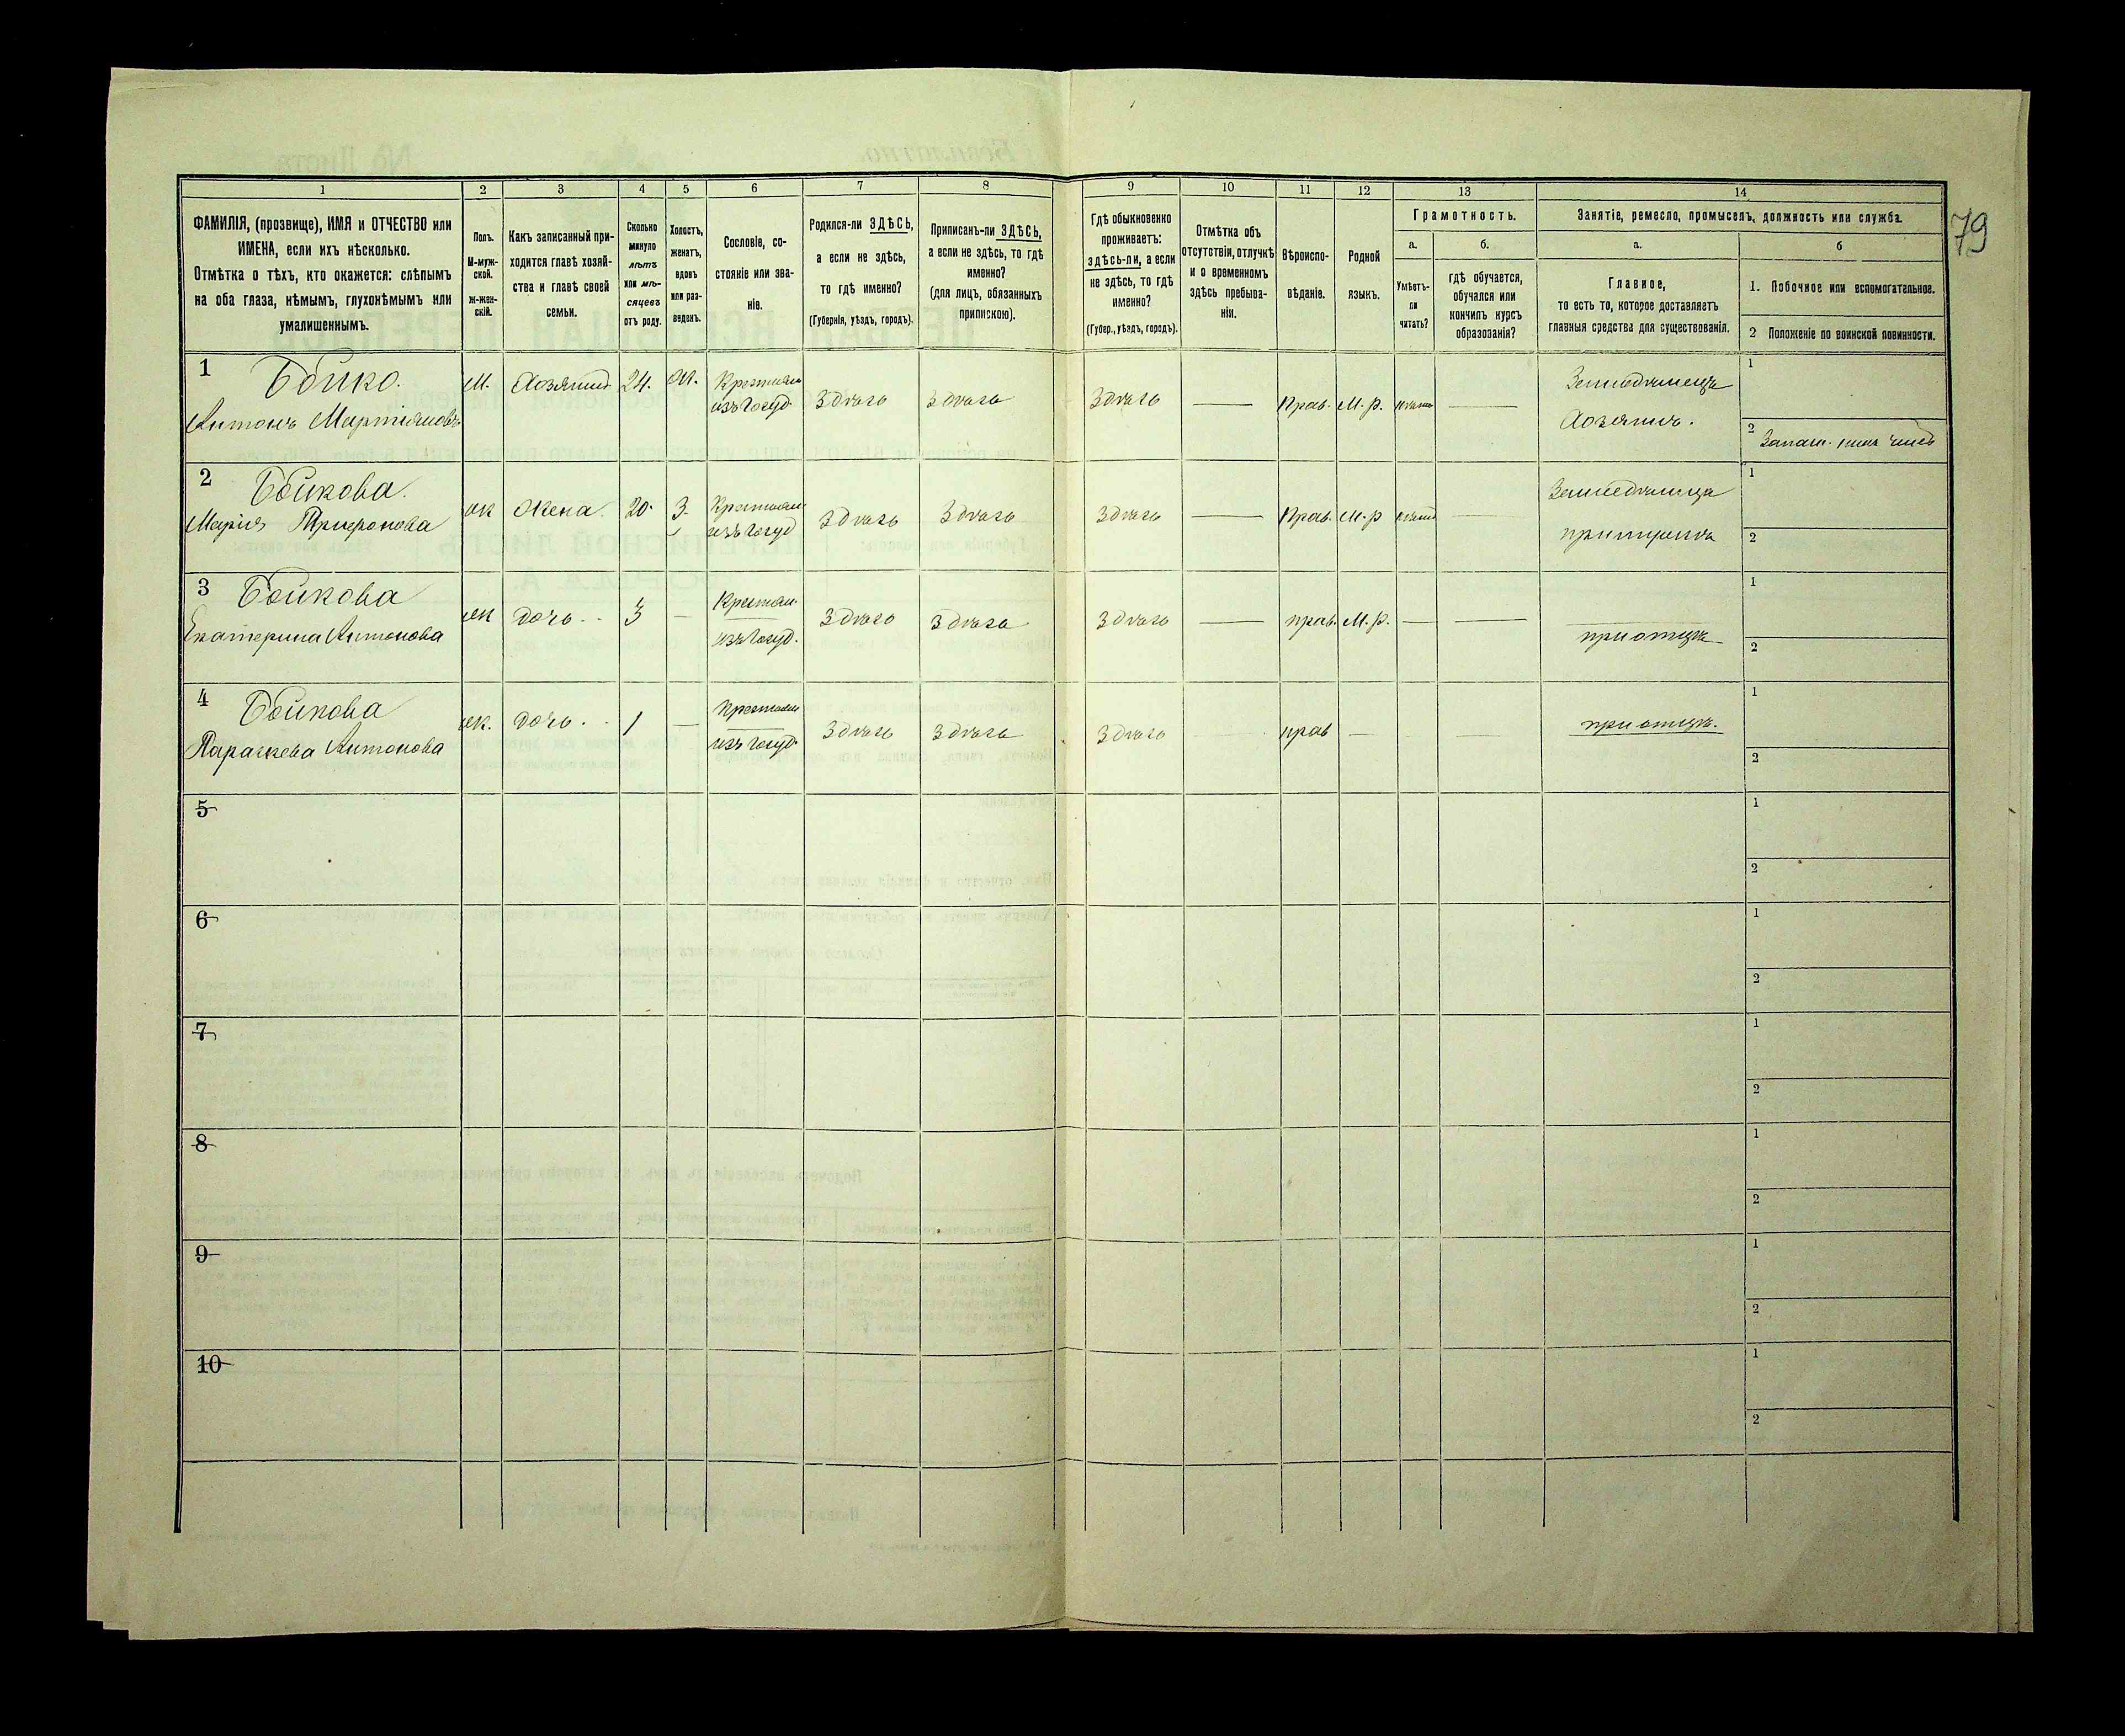 79
1 2 3 4 5 6 7 8 9 10 11 12 13 14
ФАМИЛІЯ, (прозвище), ИМЯ и ОТЧЕСТВО или
ИМЕНА, если ихъ нѣсколько.
Отмѣтка о тѣхъ, кто окажется: слѣпымъ
на оба глаза, нѣмымъ, глухонѣмымъ или
умалишеннымъ.
Полъ.
М-муж-
ской.
Ж-жен-
скій.
Какъ записанный при-
ходится главѣ хозяй-
ства и главѣ своей
семьи.
Сколько
минуло
лѣтъ
или мѣ-
сяцевъ
отъ роду.
Холостъ,
женатъ,
вдовъ
или раз-
веденъ.
Сословіе, со-
стояніе или зва-
ніе.
Родился-ли ЗДѢСЬ,
а если не здѣсь,
то гдѣ именно?
(Губернія, уѣздъ, городъ).
Приписанъ-ли ЗДѢСЬ,
а если не здѣсь, то гдѣ
именно?
(для лицъ, обязанныхъ
припискою).
Гдѣ обыкновенно
проживаетъ:
здѣсь-ли, а если
не здѣсь, то гдѣ
именно?
(Губер., уѣздъ, городъ).
Отмѣтка объ
отсутствіи, отлучкѣ
и о временномъ
здѣсь пребыва-
ніи.
Вѣроиспо-
вѣданіе.
Родной
языкъ.
Грамотность.
а.
Умѣетъ-
ли
читать?
б.
гдѣ обучается,
обучался или
кончилъ курсъ
образованія?
Занятіе, ремесло, промыселъ, должность или служба.
а.
Главное,
то есть то, которое доставляетъ
главныя средства для существованія.
б
1. Побочное или вспомогательное.
2 Положеніе по воинской повинности.
1 Бойко.
Антонъ Мартіяновъ
М. Хозяинъ 24. Ж. Крестьян
изъ госуд
Здѣсь Здѣсь Здѣсь — Прав. М. р. —
Земледѣлецъ
Хозяинъ.
1
2
2 Бойкова.
Марія
ж жена. 20. З. Крестьян
изъ госуд
Здѣсь Здѣсь Здѣсь — Прав. М. р —
1
2
3 Бойкова
Екатерина Антонова
ж дочь 3 — Крестьян.
изъ госуд.
Здѣсь Здѣсь Здѣсь — прав. М. р. — —
при отцѣ
1
2
4 Бойкова
Параскева Антонова
ж. дочь 1 — Крестьян
изъ госуд.
Здѣсь Здѣсь Здѣсь — прав — —
при отцѣ.
1
2
5
1
2
6
1
2
7
1
2
8
1
2
9
1
2
10
1
2